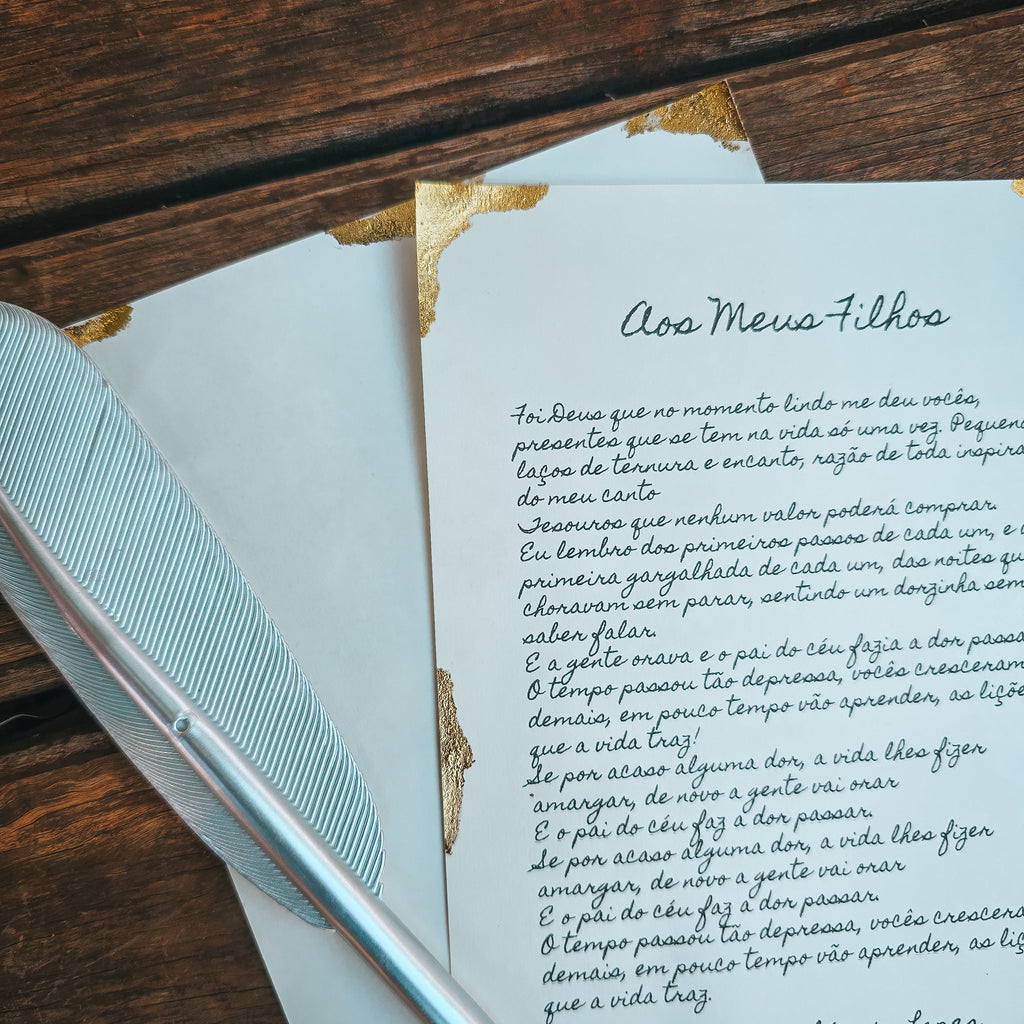 Aos Meus Filhos
Foi Deus que no momento lindo me deu vocês,
presentes que se tem na vida só uma vez.
laços de ternura e encanto, razão de toda
do meu canto
Tesouros que nenhum valor poderá comprar.
Eu lembro dos primeiros passos de cada um, e
primeira gargalhada de cada um, das noites
choravam sem parar, sentindo um dorzinha sem
saber falar.
E a gente orava e o pai do céu fazia a dor
O tempo passou tão depressa, vocês cresceram
demais, em pouco tempo vão aprender, as
que a vida traz!
Se por acaso alguma dor, a vida lhes fizer
amargar, de novo a gente vai orar
E o pai do céu faz a dor passar.
Se por acaso alguma dor, a vida lhes fizer
amargar, de novo a gente vai orar
E o pai do céu faz a dor passar.
O tempo passou tão depressa, vocês
demais, em pouco tempo vão aprender, as
que a vida traz.